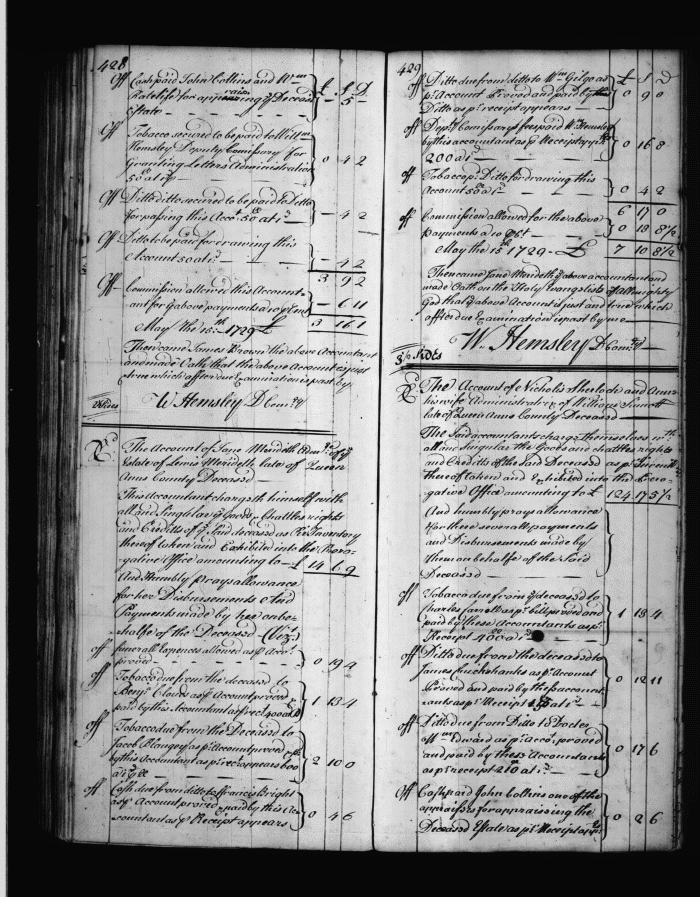 428
Off Cash paid John Collins and Wm £ S D
Ratclife for appraising ye Deceas'd
Estate — — — — — 5 —
Off Tobacco secured to be paid to Willm
Hemsley Deputy Comissary for
Granting Letters Administration
50 at 1d 0 4 2
Off Ditto ditto secured to be paid to Ditto
for passing this Acct. 50 at 1d — 4 2
Off Ditto to be paid for drawing this
Account 50 at 1d — 4 2
3 9 2
Off Commission allowed this Account-
ant for ye above payments a 10 p Cent — 6 11
May the 15th 1729 £ 3 16 1
Then came James Brown the above Accountant
and made Oath that the above Account is just
& true which after due Examination is past by
W Hemsley D Comry
Sides
The Account of Jane Merideth Admrx of ye
Estate of Lewis Merideth late of Queen
Anns County Deceased —
This Accountant chargeth himself with
all and Singular ye Goods Chattles rights
and Creditts of ye Said deceased as p Inventory
thereof taken and Exhibited into the Prero-
gative Office amounting to — £ 14 6 9
And Humbly Prays allowance
for her Disbursements And
Payments made by her on be-
halfe of the Deceased (Vizt)
off funerall expences allowed as p Acct
proved — — — — — 0 19 4
off Tobacco due from the deceased to
Benja Clowes as p Account proved &
paid by this Accountant as p rect 400 at 1d 1 13 4
off Tobacco due from the Deceased to
Jacob Blangey as p Account proved &
by this Accountant as p rect appears 600
a 1d p lb 2 10 0
off Cash due from ditto to Francis Bright
as p Account proved & paid by this Ac-
countant as p Receipt appears 0 4 6
429
off Ditto due from ditto to Wm Gilgo as £ S D
pr Account Proved and paid by
Ditto as pr receipt appears — — 0 9 0
off Depty Comissarys fees paid Wm Hemsley
by this accountant as p Receipt
200 a 1d 0 16 8
off Tobacco p Ditto for drawing this
Account 50 a 1d — — 0 4 2
6 17 0
off Commission allowed for the above
payments a 10 p Ct — 0 13 8½
May the 15th 1729 — £ 7 10 8½
Then came Jane Merideth ye above accountant
made Oath on the Holy Evangelists of allmighty
God that ye above Account is just and true which
after due Examination is past by me
W. Hemsley D Comry
3½ Sides
The Account of Nicholas Sherlock and Anne
his wife Administratrix of William
late of Queen Anns County Deceased
The Said accountants charge themselves wth
all and Singular the Goods and chattles rights
and Credits of the Said Deceased as pr Inventory
thereof taken and Exhibited into the Prero-
gative Office amounting to £ 124 17 5½
And humbly prays allowance
for these severall payments
and Disbursements made by
them on behalfe of the Said
Deceased — — —
off Tobacco due from ye deceased to
Charles as pr bill proved and
paid by these Accountants as pr
Receipt 400 a 1d 1 13 4
off Ditto due from the deceased to
James as p Account
Proved and paid by these account
ants as pr Receipt at 1d 0 12 11
off Ditto due from Ditto to
Edward as pr acct. proved
and paid by these Accountants
as pr receipt 210 at 1d 0 17 6
off Cash paid John Collins one of the
appraisers for appraising the
Deceased Estate as pr Receipt app 0 2 6